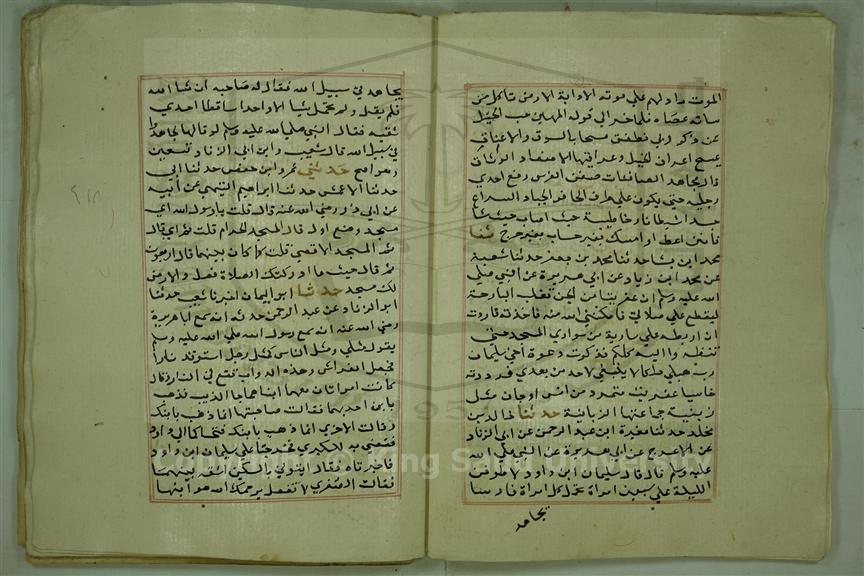 الموت ما دلهم على موته الا دابة الارض تأكل من
ساته عصاه فلما خر الى قوله المهين حب الخيل
عن ذكر ربي فطفق مسحا بالسوق والاعناق
يمسح اعراف الخيل وعراقيبها الاصفاد الوثاق
قال مجاهد الصافنات صفن الفرس رفع احدى
رجليه حتى يكون على طرف الحافر الجياد السراع
جسدا شيطانا رخا طيبة حيث اصاب حيث شا
فامنن اعط او امسك بغير حساب بغير حرج ثنا
محمد ابن بشار حدثنا محمد بن جعفر حدثنا شعبة
عن محمد ابن زياد عن ابي هريرة عن النبي صلى
الله عليه وسلم ان عفريتا من الجن تفلت البارحة
ليقطع علي صلاتي فامكنني الله منه فاخذته فاردت
ان اربطه على سارية من سواري المسجد حتى
تنظروا اليه كلكم فذكرت دعوة اخي سليمان
رب هب لي ملكا لا ينبغي لاحد من بعدي فرددته
خاسيا عفريت متمرد من انس او جان مثل
زبنية جماعتها الزبانية حدثنا خالد بن
مخلد حدثنا مغيرة ابن عبد الرحمن عن ابي الزناد
عن الاعرج عن ابي هريرة عن النبي صلى الله
عليه وسلم قال قال سليمان ابن داود لاطوفن
الليلة على سبعين امراة تحمل كل امراة فارسا
يجاهد
يجاهد في سبيل الله فقال له صاحبه ان شا الله
فلم يقل ولم تحمل شيا الا واحدا ساقطا احدى
شقيه فقال النبي صلى الله عليه وسلم لو قالها لجاهدوا
في سبيل الله قال شعيب وابن ابي الزناد تسعين
وهو اصح حدثني عمر ابن حفص حدثنا ابي
حدثنا الاعمش حدثنا ابراهيم التيمي عن ابيه
عن ابي ذر رضي الله عنه قال قلت يا رسول الله اي
مسجد وضع اول قال المسجد الحرام قلت ثم اي قال
ثم المسجد الاقصى قلت كم كان بينهما قال اربعون
ثم قال حيث ما ادركتك الصلاة فصل والارض
لك مسجد حدثنا ابو اليمان اخبرنا شعيب حدثنا
ابو الزناد عن عبد الرحمن حدثه انه سمع ابا هريرة
رضي الله عنه انه سمع رسول الله صلى الله عليه وسلم
يقول مثلي ومثل الناس كمثل رجل استوقد نارا
فجعل الفراش وهذه الدواب تقع في النار وقال
كانت امراتان معهما ابناهما جا الذيب فذهب
بابن احديهما فقالت صاحبتها انما ذهب بابنك
وقالت الاخرى انما ذهب بابنك فتحاكما الى داود
فقضى به للكبرى فخرجتا على سليمان ابن داود
فاخبرتاه فقال ايتوني بالسكين اشقه بينهما
فقالت الصغرى لا تفعل يرحمك الله هو ابنها